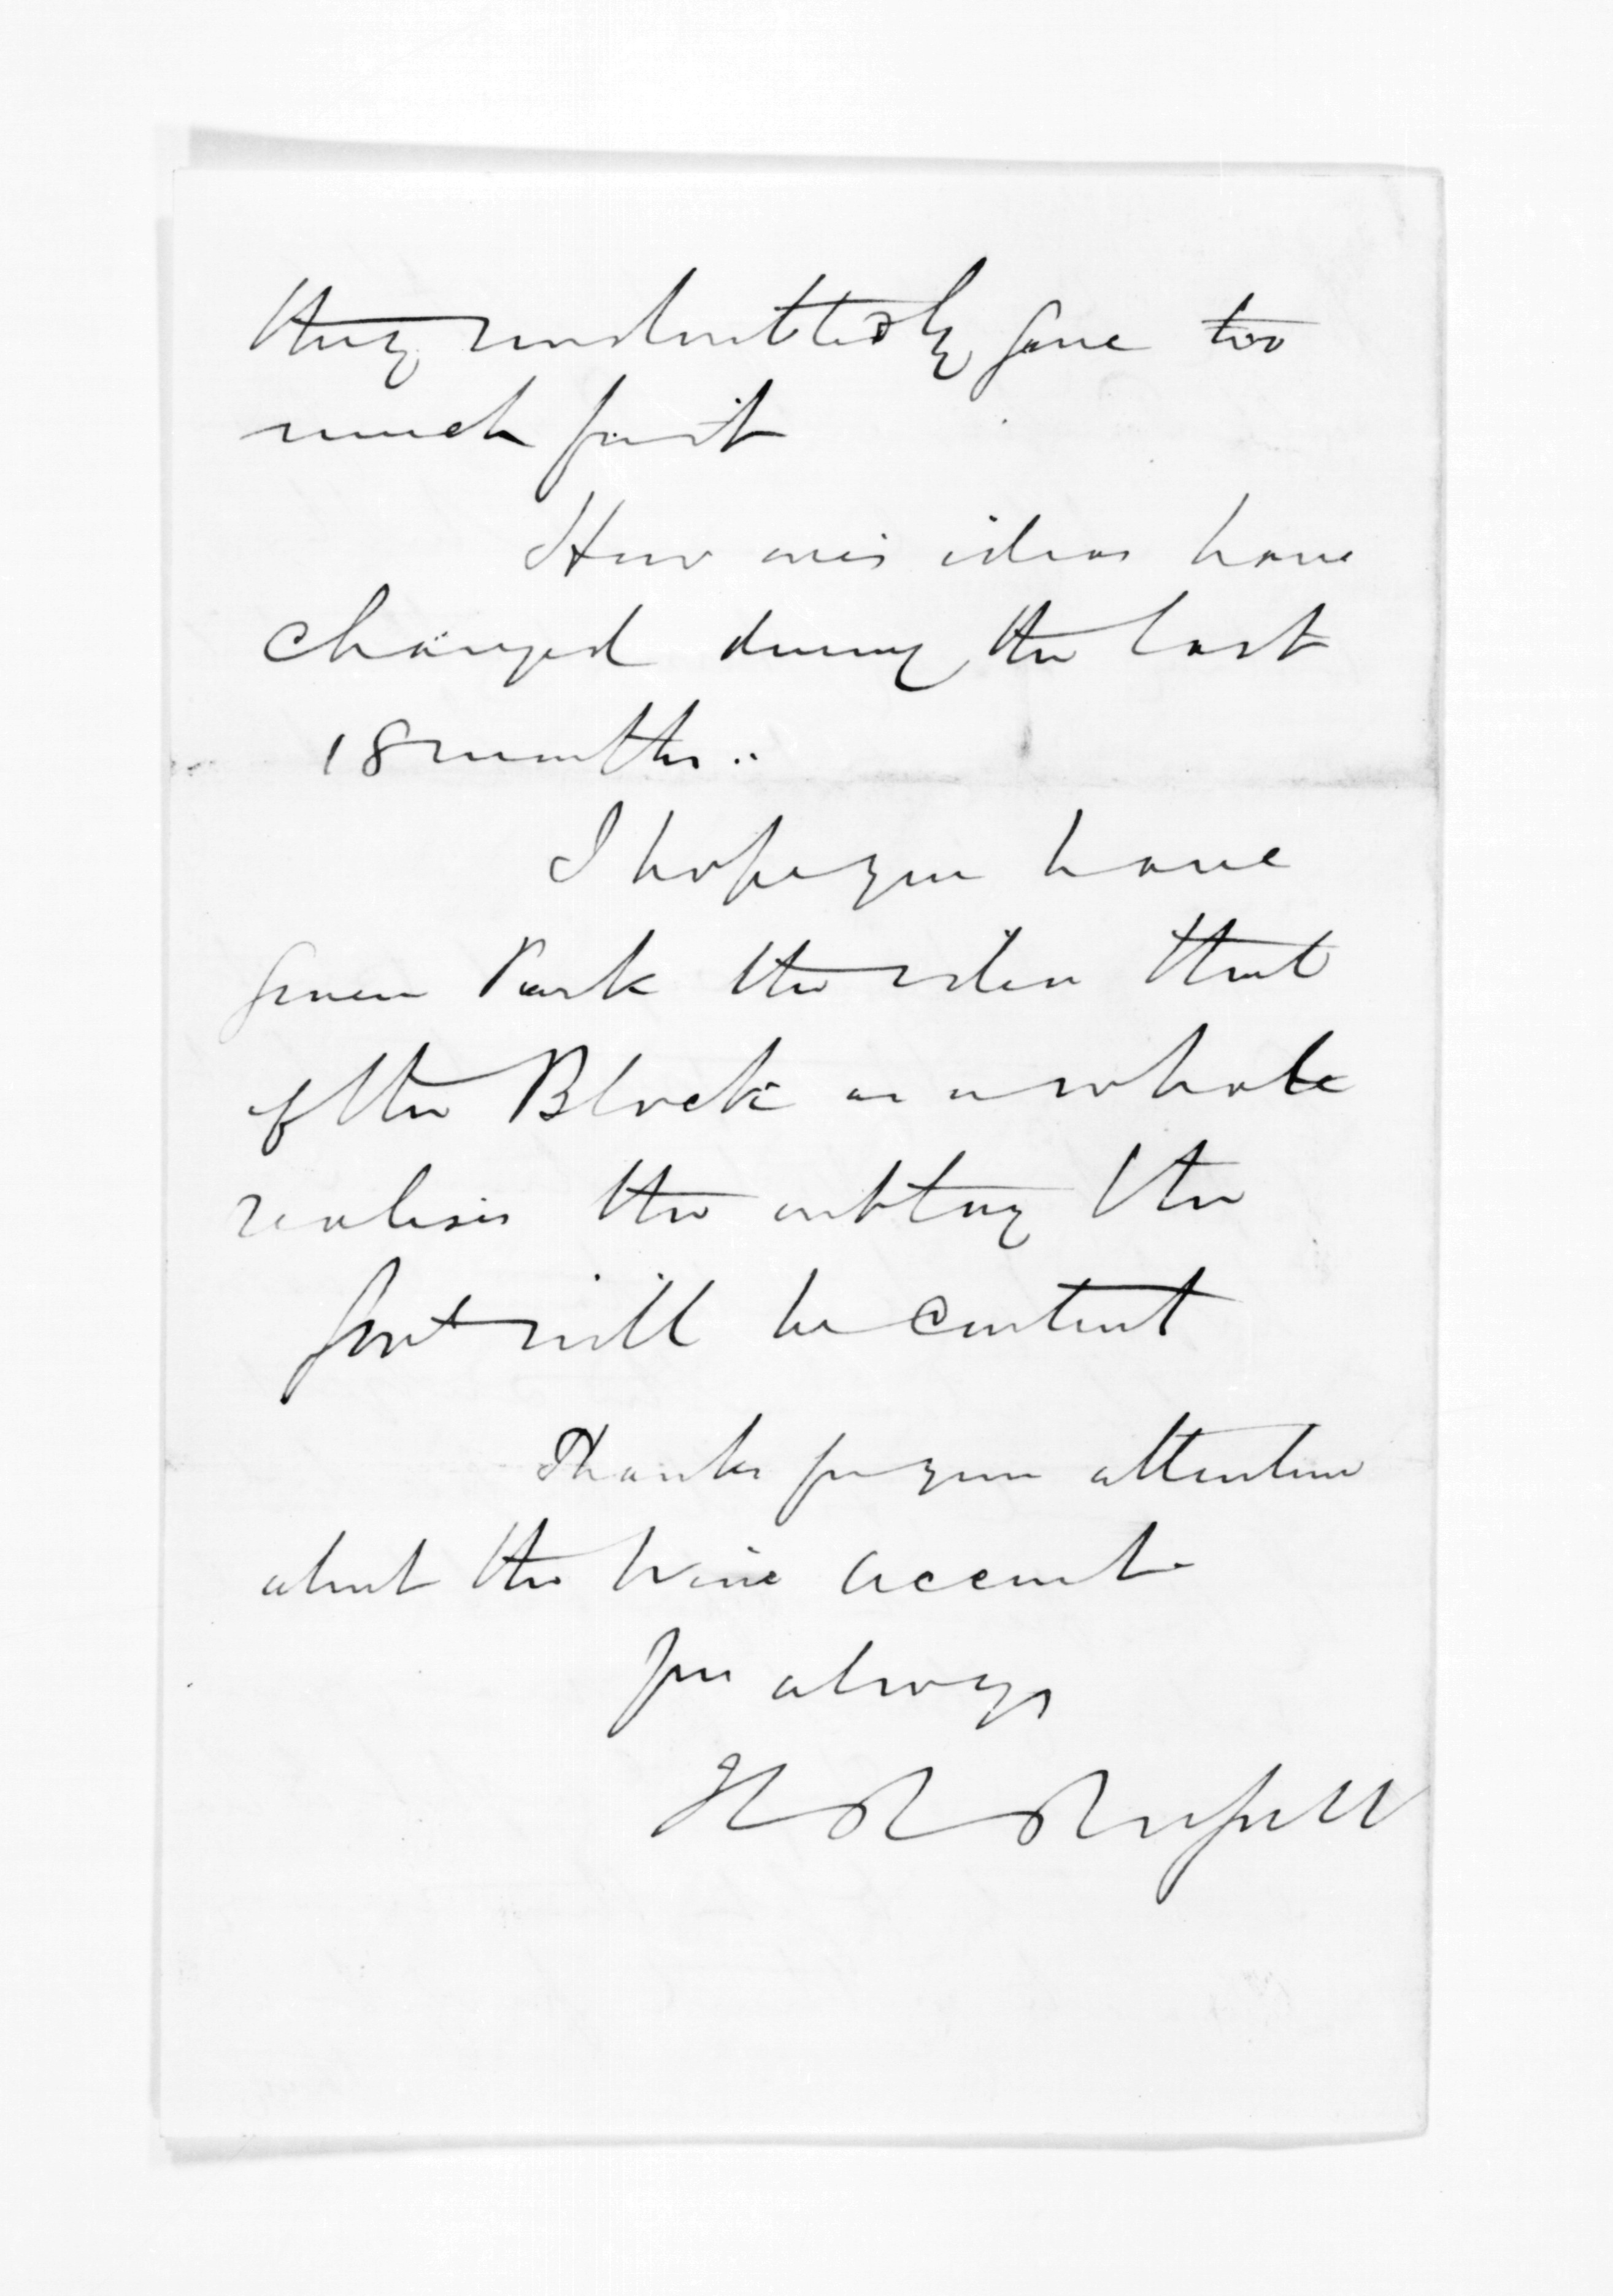 they undoubtedly gave too
much for it
How one's ideas have
changed during the last
18 months..
I hope you have
given Park the idea that
if the Block as a whole
realises the outlay the
Govt will be content
Thanks for your attention
about the wine account
Yrs always
H R Russell